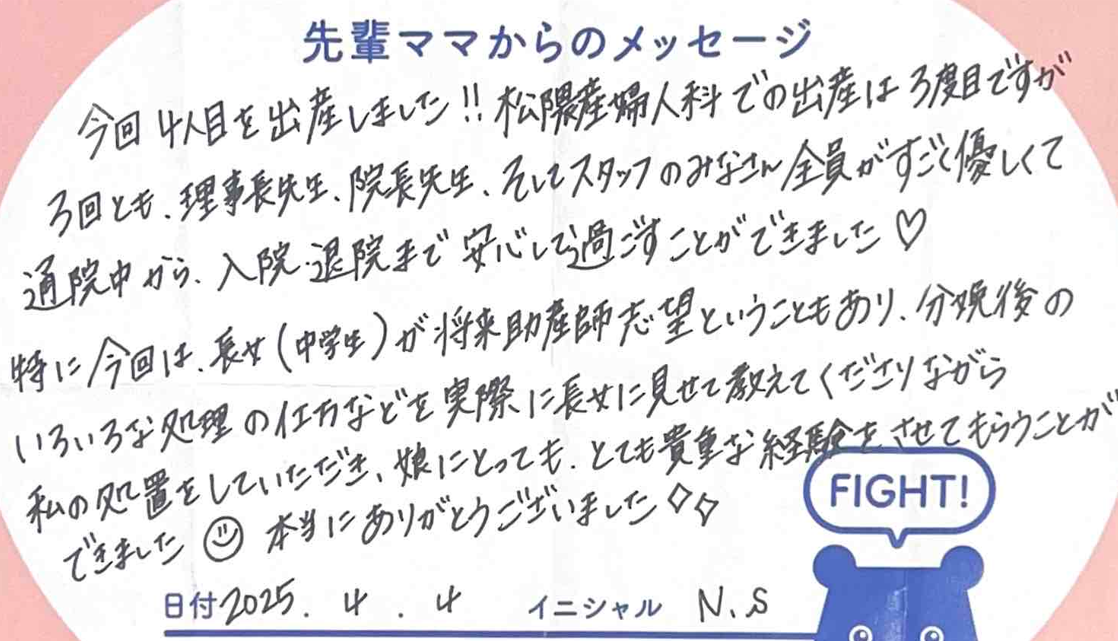 先輩ママからのメッセージ
今回4人目を出産しました!! 松陽産婦人科での出産は3度目ですが
3回とも、理事長先生、院長先生、そしてスタッフのみなさん全員がすごく優しくて
通院中から、入院、退院まで安心して過ごすことができました♡
特に今回は、長女(中学生)が将来助産師志望ということもあり、分娩後の
いろいろな処理の仕方などを実際に長女に見せて教えてくださりながら
私の処置をしていただき、娘にとっても、とても貴重な経験をさせてもらうことが
できました☺ 本当にありがとうございました✧✧
FIGHT!
日付 2025. 4. 4 イニシャル N.S